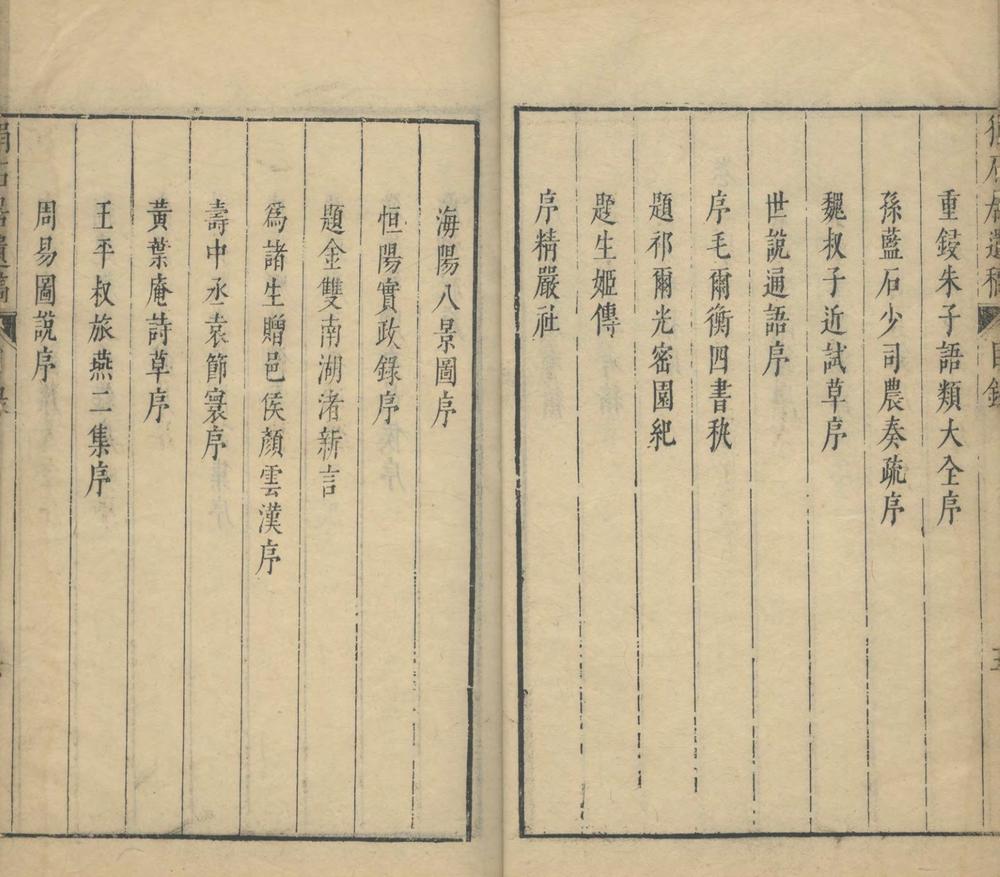 重鋟朱子語類大全序
孫藍石少司農奏疏序
魏叔子近試草序
世說通語序
序毛爾衡四書秇
題祁爾光密園紀
題生姬傳
序精嚴社
海陽八景圖序
恒陽實政錄序
題金雙南湖渚新言
爲諸生贈邑侯顏雲漢序
壽中丞袁節寰序
黃葉庵詩草序
王平叔旅燕二集序
周易圖說序